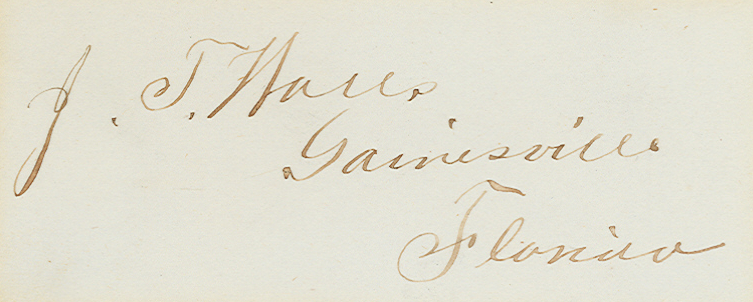 J. T. Walls
Gainesville
Florida